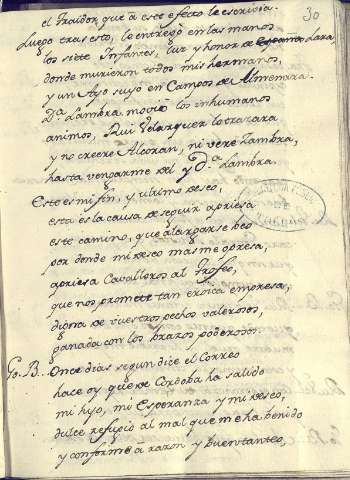 30
el traidor, que a este efecto le escrivia.
Luego tras esto, lo entregò en las manos
los siete Infantes, luz y honor de España Lara
donde murieron todos mis hermanos,
y un Ayo suyo en Campos de Almenara.
Dª Lambra, moviò los inhumanos
animos, Rui Velazquez lo trazara
y no creere Alcoran, ni vere Zambra,
hasta vengarme del y Dª Lambra.
Este es mi fin, y ultimo deseo,
esta es la causa de seguir apriesa
este camino, que alargarse beo
por donde mi deseo mas me opresa,
apriesa Cavalleros al Trofeo,
que nos promete tan eroica empresa,
digna de vuestros pechos valerosos,
ganada con los brazos poderosos.
Go. B. Once dias segun dice el Correo
hace oy que de Cordoba ha salido
mi hijo, mi Esperanza y mi deseo,
dulce refugio al mal que me ha benido
y conforme a razon y buen tanteo,